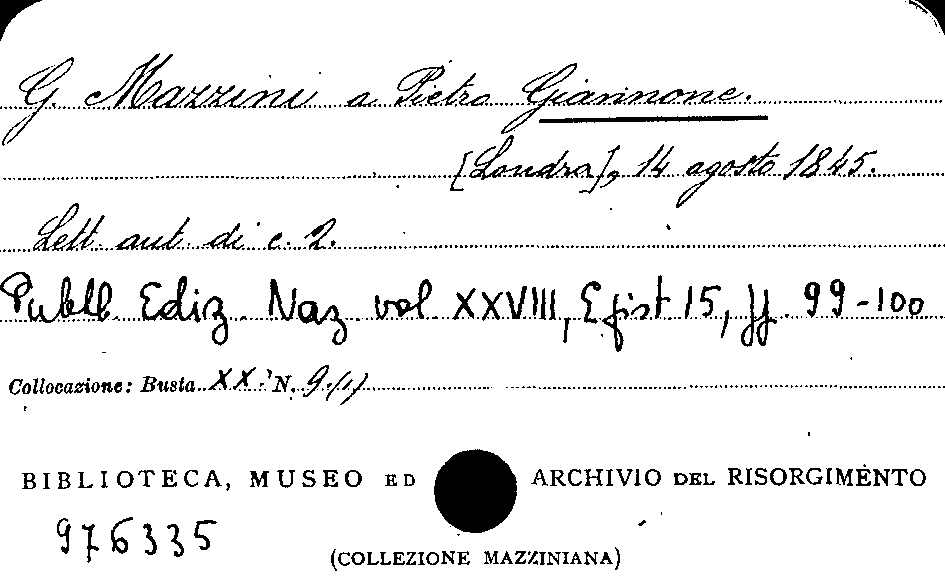 G. Mazzini a Pietro Giannone.
[Londra], 14 agosto 1845.
Lett. aut. di c. 2.
Pubbl. Ediz. Naz. vol XXVIII, Epist 15, pp. 99-100
Collocazione: Busta XX. N. 9.(1)
BIBLIOTECA, MUSEO ED ARCHIVIO DEL RISORGIMENTO
976335
(COLLEZIONE MAZZINIANA)